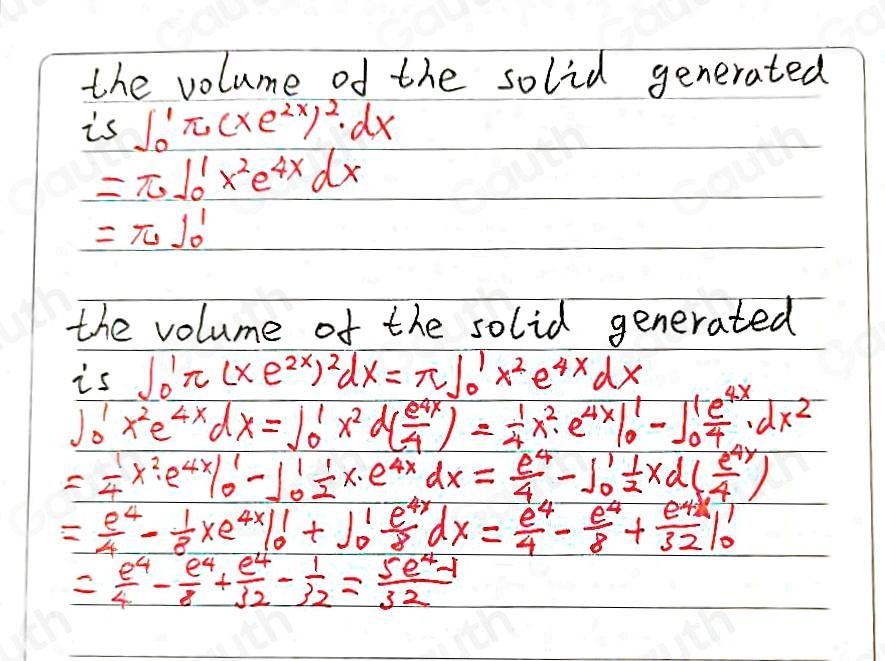 the volume of the solid generated
is ∫₀¹ π(xe²ˣ)²·dx
= π∫₀¹ x²e⁴ˣ dx
= π∫₀¹
the volume of the solid generated
is ∫₀¹ π(xe²ˣ)²dx = π∫₀¹ x²e⁴ˣdx
∫₀¹ x²e⁴ˣdx = ∫₀¹ x² d(e⁴ˣ/4) = 1/4 x²·e⁴ˣ|₀¹ - ∫₀¹ e⁴ˣ/4 ·dx²
= 1/4 x²·e⁴ˣ|₀¹ - ∫₀¹ 1/2 x·e⁴ˣ dx = e⁴/4 - ∫₀¹ 1/2 xd(e⁴ˣ/4)
= e⁴/4 - 1/8 xe⁴ˣ|₀¹ + ∫₀¹ e⁴ˣ/8 dx = e⁴/4 - e⁴/8 + e⁴ˣ/32 |₀¹
= e⁴/4 - e⁴/8 + e⁴/32 - 1/32 = 5e⁴-1/32
Gauth